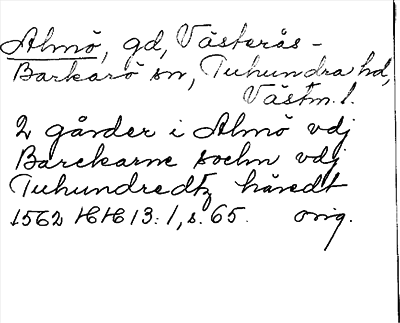 Almö, gd, Västerås-
Barkarö sn, Tuhundra hd,
Västm. l.
2 gårder i Almö vdj
Barckarne sochn vdj
Tuhundredtz häredt
1562 HH 13:1, s. 65. orig.